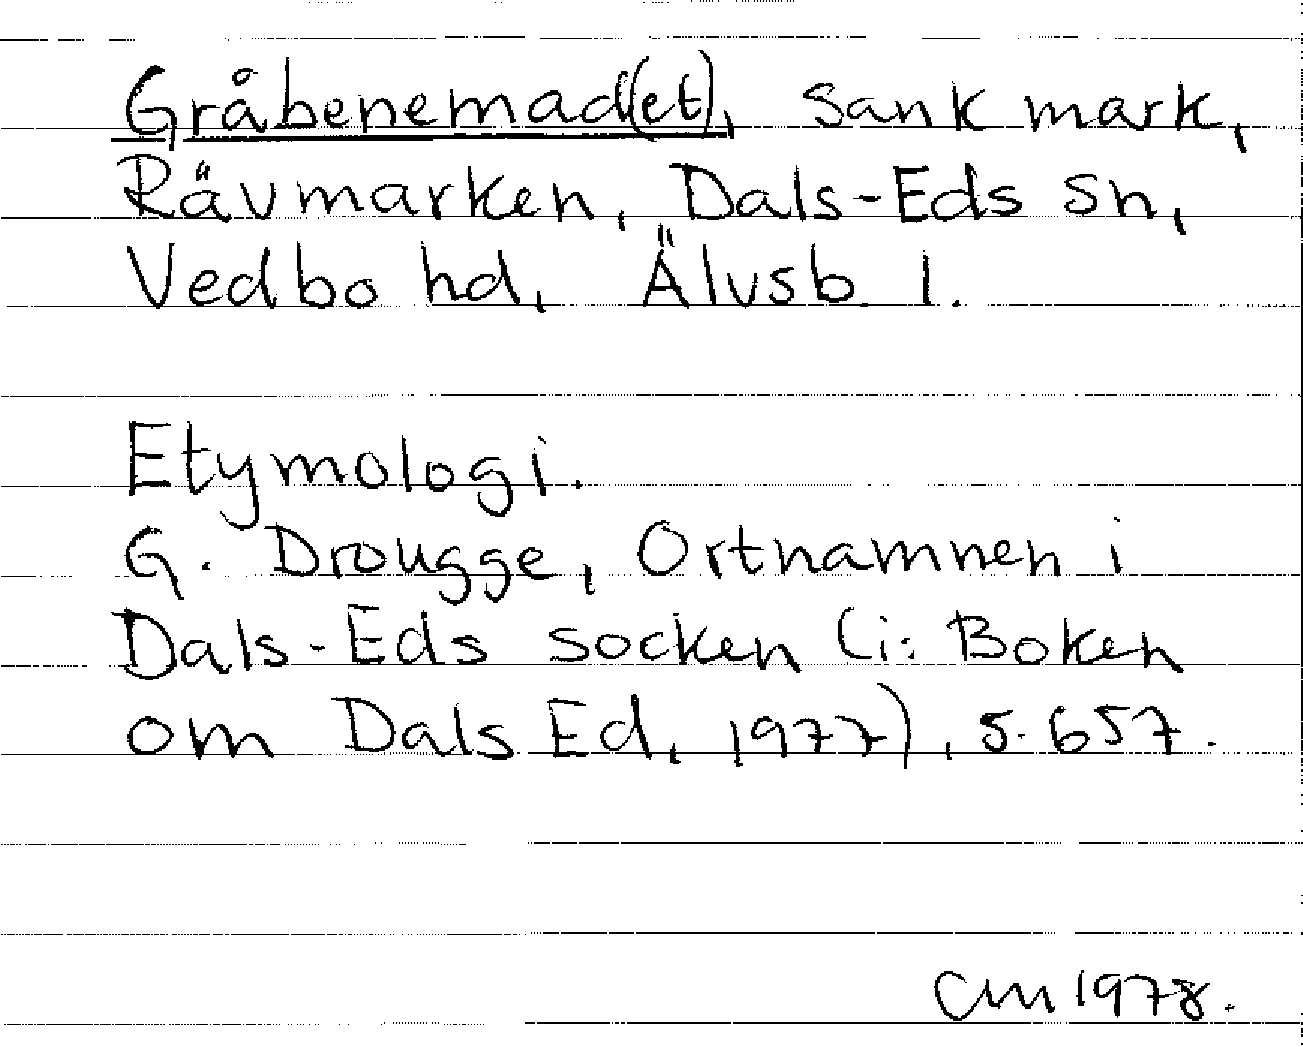 Gråbenemad(et), sank mark,
Rävmarken, Dals-Eds sn,
Vedbo hd, Älvsb. l.
Etymologi.
G. Drougge, Ortnamnen i
Dals-Eds socken (i: Boken
om Dals Ed, 1977), s. 657.
CM 1978.